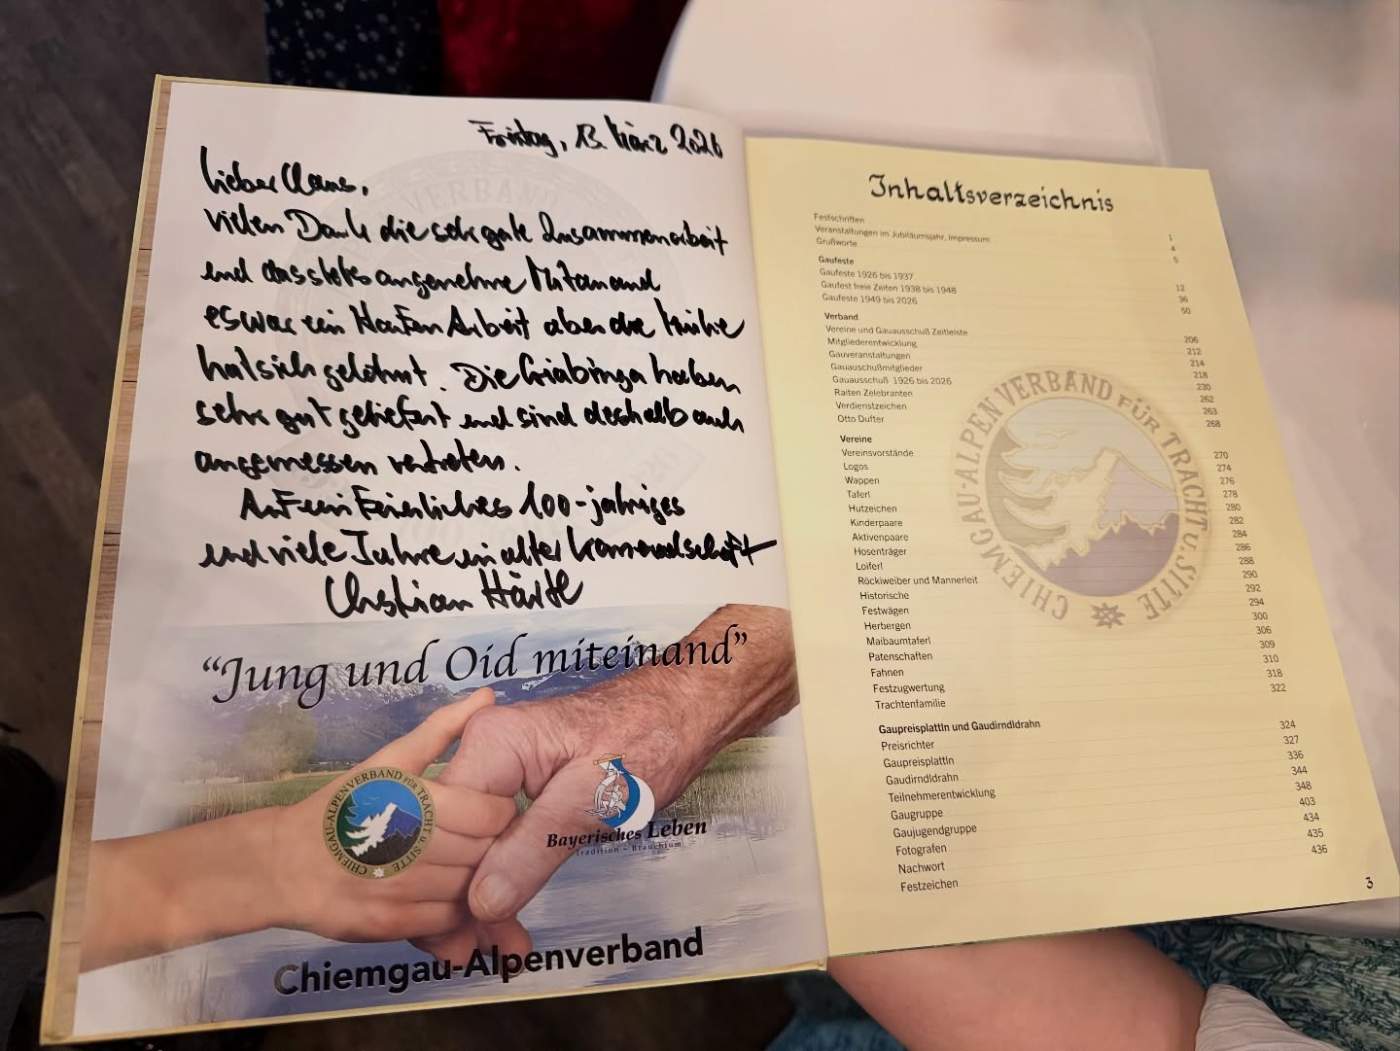 Freitag, 13. März 2026
Lieber Claus,
vielen Dank die sehr gute Zusammenarbeit
und das stets angenehme Mitanand
es war ein Haufen Arbeit aber die Mühe
hat sich gelohnt. Die Griabinga haben
sehr gut geliefert und sind deshalb auch
angemessen vertreten.
Auf ein Feierliches 100-jähriges
und viele Jahre in alter Kameradschaft
Christian Härtl
"Jung und Oid miteinand"
CHIEMGAU-ALPENVERBAND FÜR TRACHT U. SITTE
Bayerisches Leben
Tradition - Brauchtum
Chiemgau-Alpenverband
Inhaltsverzeichnis
Festschriften 1
Veranstaltungen im Jubiläumsjahr, Impressum 4
Grußworte 5
Gaufeste
Gaufeste 1926 bis 1937 12
Gaufest freie Zeiten 1938 bis 1948 36
Gaufeste 1949 bis 2026 50
Verband
Vereine und Gauausschuß Zeitleiste 206
Mitgliederentwicklung 212
Gauveranstaltungen 214
Gauauschußmitglieder 218
Gauausschuß 1926 bis 2026 230
Raiten Zelebranten 262
Verdienstzeichen 263
Otto Dufter 268
Vereine
Vereinsvorstände 270
Logos 274
Wappen 276
Taferl 278
Hutzeichen 280
Kinderpaare 282
Aktivenpaare 284
Hosenträger 286
Loiferl 288
Röckiweiber und Mannerleit 290
Historische 292
Festwägen 294
Herbergen 300
Maibaumtaferl 306
Patenschaften 309
Fahnen 310
Festzugwertung 318
Trachtenfamilie 322
Gaupreisplattln und Gaudirndldrahn
Preisrichter 324
Gaupreisplattln 327
Gaudirndldrahn 336
Teilnehmerentwicklung 344
Gaugruppe 348
Gaujugendgruppe 403
Fotografen 434
Nachwort 435
Festzeichen 436
CHIEMGAU-ALPENVERBAND FÜR TRACHT U. SITTE
3